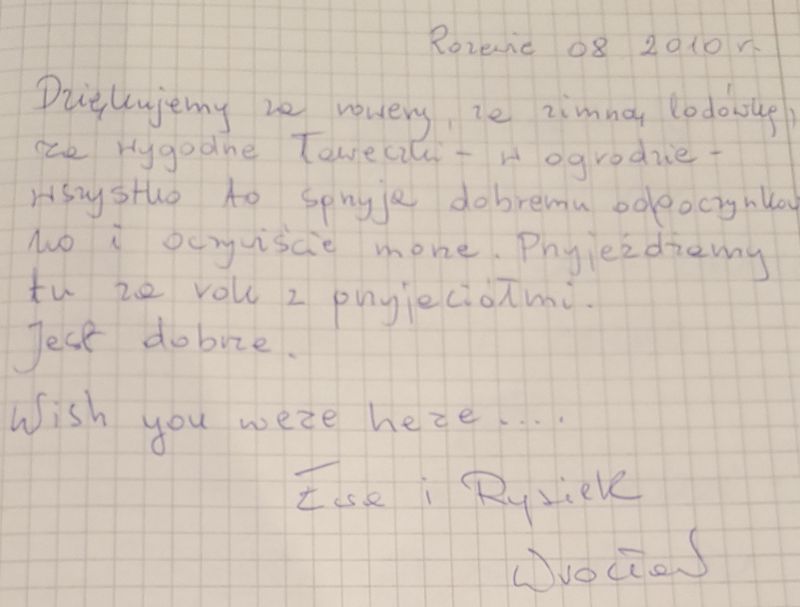 Rozewie 08 2010 r.
Dziękujemy za rowery, za zimną lodówkę,
za wygodne ławeczki - w ogrodzie -
wszystko to sprzyja dobremu odpoczynkow
no i oczywiście morze. Przyjeżdżamy
tu za rok z przyjaciółmi.
Jest dobrze.
Wish you were here....
Ewa i Rysiek
Wrocław